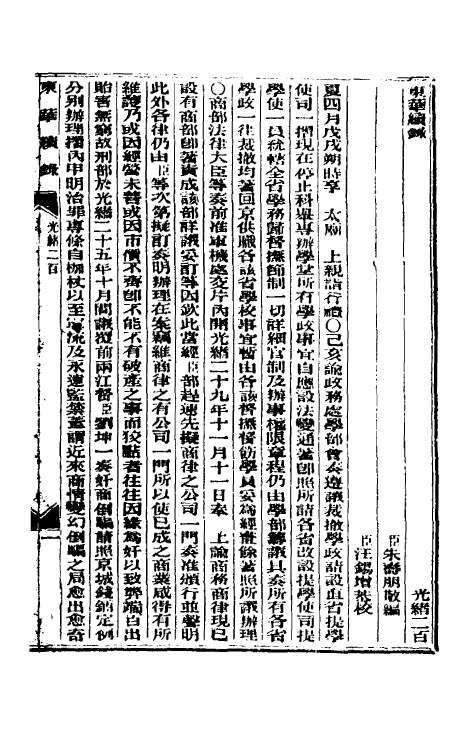 東華續錄　光緒二百
臣朱壽朋敬編
臣汪錫增恭校
夏四月戊戌朔時享　太廟　上親詣行禮〇己亥諭政務處學部會奏遵議裁撤學政請設直省提學
使司一摺現在停止科舉專辦學堂所有學政事宜自應設法變通著卽照所請各省改設提學使司提
學使一員統轄全省學務歸督撫節制一切詳細官制及辦事權限章程仍由學部籌議具奏所有各省
學政一律裁撤均著回京供職各該省學校事宜暫由各該督撫督飭學員妥為經畫餘著照所議辦理
〇商部法律大臣等奏前准軍機處交片內開光緒二十九年十一月十一日奉　上諭商務商律現已
設有商部卽著責成該部詳議妥訂等因欽此當經臣部趕速先擬商律之公司一門奏准頒行並聲明
此外各律仍由臣等次第擬訂奏明辦理在案竊維商律之有公司一門所以使已成之商業咸得有所
維護乃或因經營未善或因市價不齊卽不能不有破產之事而狡黠者往往因緣為奸以致弊端百出
貽害無窮故刑部於光緒二十五年十月間議覆前兩江督臣劉坤一奏奸商倒騙請照京城錢鋪定例
分別辦理摺內申明治罪專條自枷杖以至軍流及永遠監禁蓋謂近來商情變幻倒騙之局愈出愈奇
東華續錄　光緒二百　一